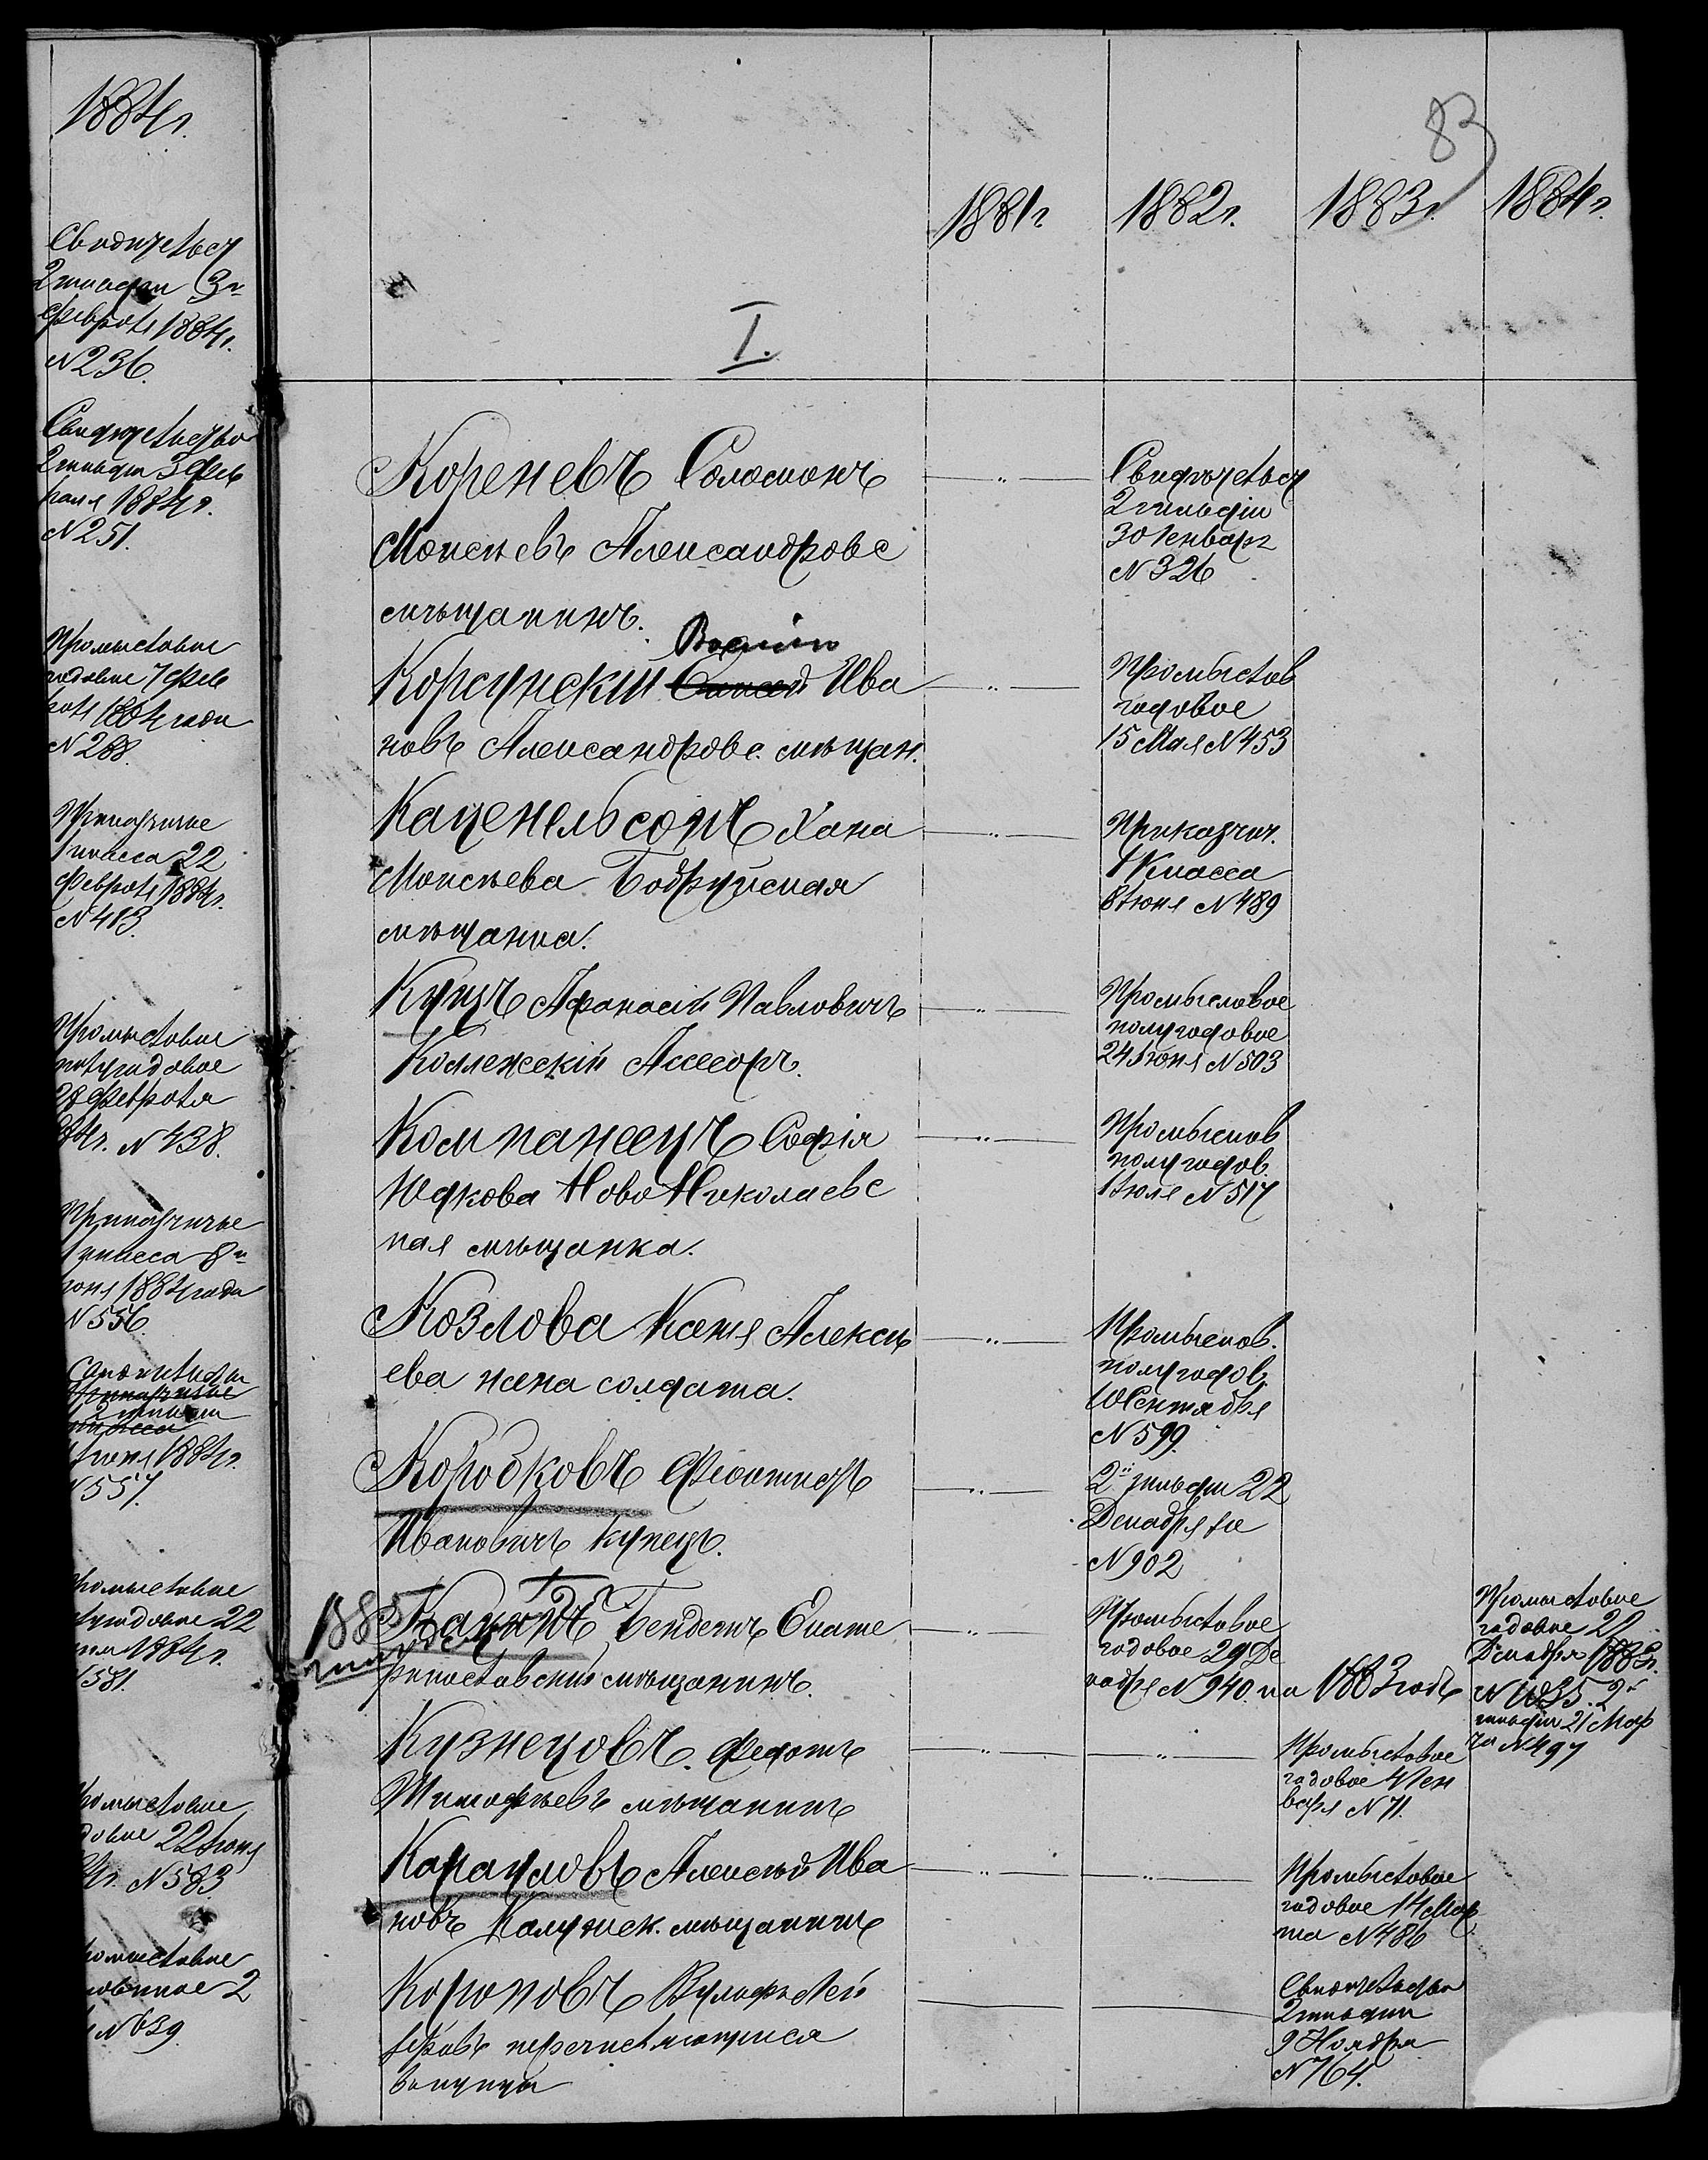 1884г.
Свидѣтельст
2 гильдіи 3го
февраля 1884г.
N 236.
Свидѣтельство
2 гильдіи 3 Фев
раля 1884г.
N 251.
Промысловое
годовое 7 Фев
1884 года
N 268.
Приказчичье
1 класса 22
февраля 1884г.
N 413.
Промысловое
полугодовое
28 Февраля
N 438.
Приказчичье
1 класса 8го
1884 года
N 556.
Приказчичье
2 гильдіи
класса
1884г.
557.
ромысловое
угодовое 22
1884г.
581.
ромысловое
довое 22 Іюня
N 583.
ромысловое
2
N 639
83
1881г.
1882г.
1883г.
1884г.
I.
Кореневъ Соломонъ
Моисѣевъ Александровс
мѣщанинъ.
Свидѣтельст
2 гильдіи
30 Генваря
N 326
Корсунскій Ива
новъ Александровс. мѣщан.
Промыслов
годовое
15 Мая N 453
Каценельсонъ Хана
Моисѣева Бобруйская
мѣщанка.
Приказчич.
1 Класса
8 Іюня N 489
Купцъ Афанасій Павловичъ
Коллежскій Ассесоръ.
Промысловое
полугодовое
24 Іюня N 503
Компанеецъ Софія
Юдкова Ново Николаевс
кая мѣщанка.
Промыслов
полугодов.
1 Іюля N 517
Козлова Ксенія Алексѣ
ева жена солдата.
Промыслов.
полугодов.
10 Сентября
N 599.
Коробковъ
Ивановичъ купецъ.
2й гильдіи 22
Декабря
N 902
1885
Бендетъ Екате
ринославскій мѣщанинъ.
Промысловое
годовое 29 Де
кабря N 940. на 1883 годъ
Промысловое
годовое 22
Декабря 1883г.
N 1035. 2й
гильдіи 21 Мар
та N 497
Кузнецовъ. Федотъ
Тимофѣевъ мѣщанинъ
Промысловое
годовое 4 Ген
варя N 71.
Карауловъ Алексѣй Ива
новъ Калужск. мѣщанинъ
Промысловое
годовое 14 Мар
та N 486
Вульфъ Лей
зеровъ перечисляющийся
въ купцы
Свидѣтельство
2 гильдіи
9 Ноября
N 764.